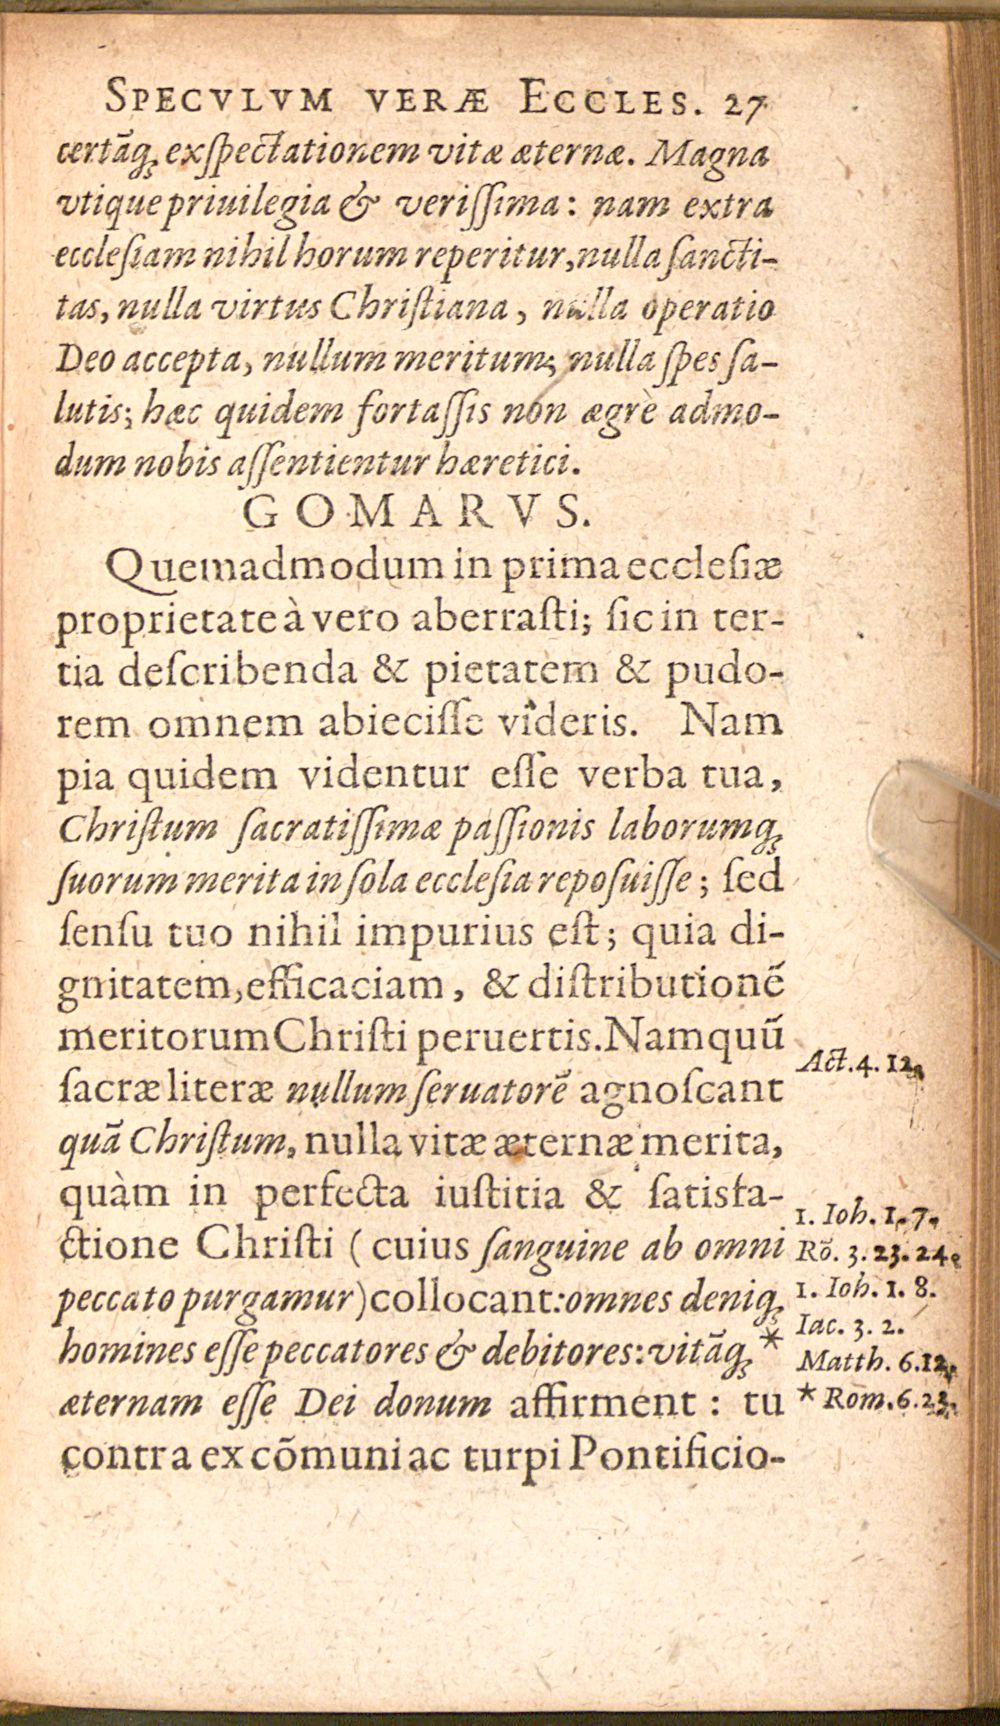 SPECVLVM VERÆ ECCLES. 27
certāq́ꝫ exſpectationem vitæ æternæ. Magna
vtique priuilegia & veriſſima: nam extra
eccleſiam nihil horum reperitur, nulla ſancti-
tas, nulla virtus Chriſtiana, nulla operatio
Deo accepta, nullum meritum; nulla ſpes ſa-
lutis; hæc quidem fortaſſis non ægrè admo-
dum nobis aſſentientur hæretici.
GOMARVS.
Quemadmodum in prima eccleſiæ
proprietate à vero aberraſti; ſic in ter-
tia deſcribenda & pietatem & pudo-
rem omnem abieciſſe videris. Nam
pia quidem videntur eſſe verba tua,
Chriſtum ſacratiſſimæ paſſionis laborumq́ꝫ
ſuorum merita in ſola eccleſia repoſuiſſe; ſed
ſenſu tuo nihil impurius eſt; quia di-
gnitatem, efficaciam, & diſtributionē
meritorum Chriſti peruertis. Nam quū
ſacræ literæ nullum ſeruatorē agnoſcant
quā Chriſtum, nulla vitæ æternæ merita,
quàm in perfecta iuſtitia & ſatisfa-
ctione Chriſti (cuius ſanguine ab omni
peccato purgamur) collocant: omnes deniq́ꝫ
homines eſſe peccatores & debitores: vitāq́ꝫ *
æternam eſſe Dei donum affirment: tu
contra ex cōmuni ac turpi Pontificio-
Act. 4. 12.
1. Ioh. 1. 7.
Rō. 3. 23. 24.
1. Ioh. 1. 8.
Iac. 3. 2.
Matth. 6. 12.
* Rom. 6. 23.